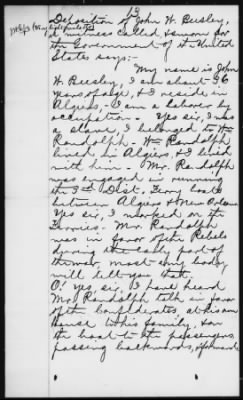 13
Deposition of John W. Beesley,
a witness called & sworn for
the Government of the United
States says:-
My name is John
W. Beesley, I am about 36
years of age, & I reside in
Algiers,- I am a laborer by
occupation - Yes sir, I was
a slave, I belonged to Wm
Randolph - Wm Randolph
lived in Algiers, & I lived
with him - Mr. Randolph
was engaged in running
the 3rd Dist. Ferry boats
between Algiers & New Orleans
Yes sir, I worked on the
Ferries - Mr. Randolph
was in favor of the Rebels
during the early part of
the war, most any body
will tell you that.
O! yes sir, I have heard
Mr. Randolph talk in favor
of the Confederates, at his own
House to his family, & on
the boat to the passengers,
passing backwards, &